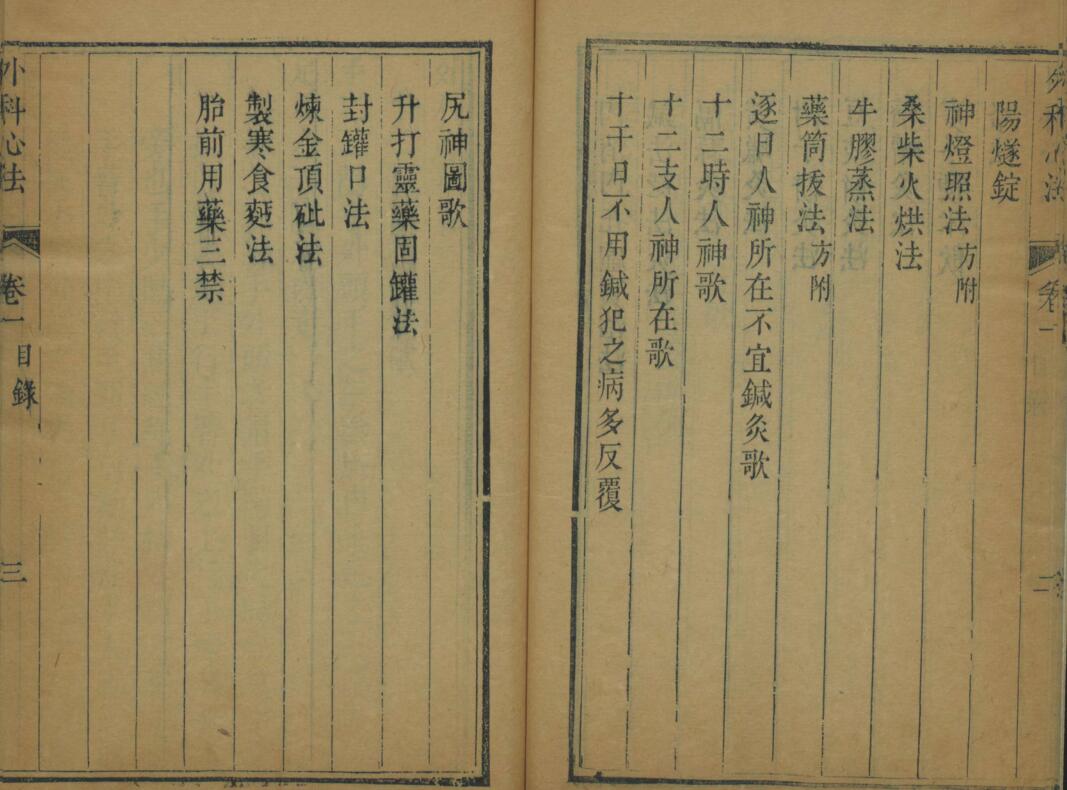 外科心法
卷一
二
陽燧錠
神燈照法 方附
桑柴火烘法
牛膠蒸法
藥筒拔法 方附
逐日人神所在不宜鍼灸歌
十二時人神歌
十二支人神所在歌
十干日不用鍼犯之病多反覆
尻神圖歌
升打靈藥固罐法
封罐口法
煉金頂砒法
製寒食麪法
胎前用藥三禁
外科心法
卷一 目錄
三